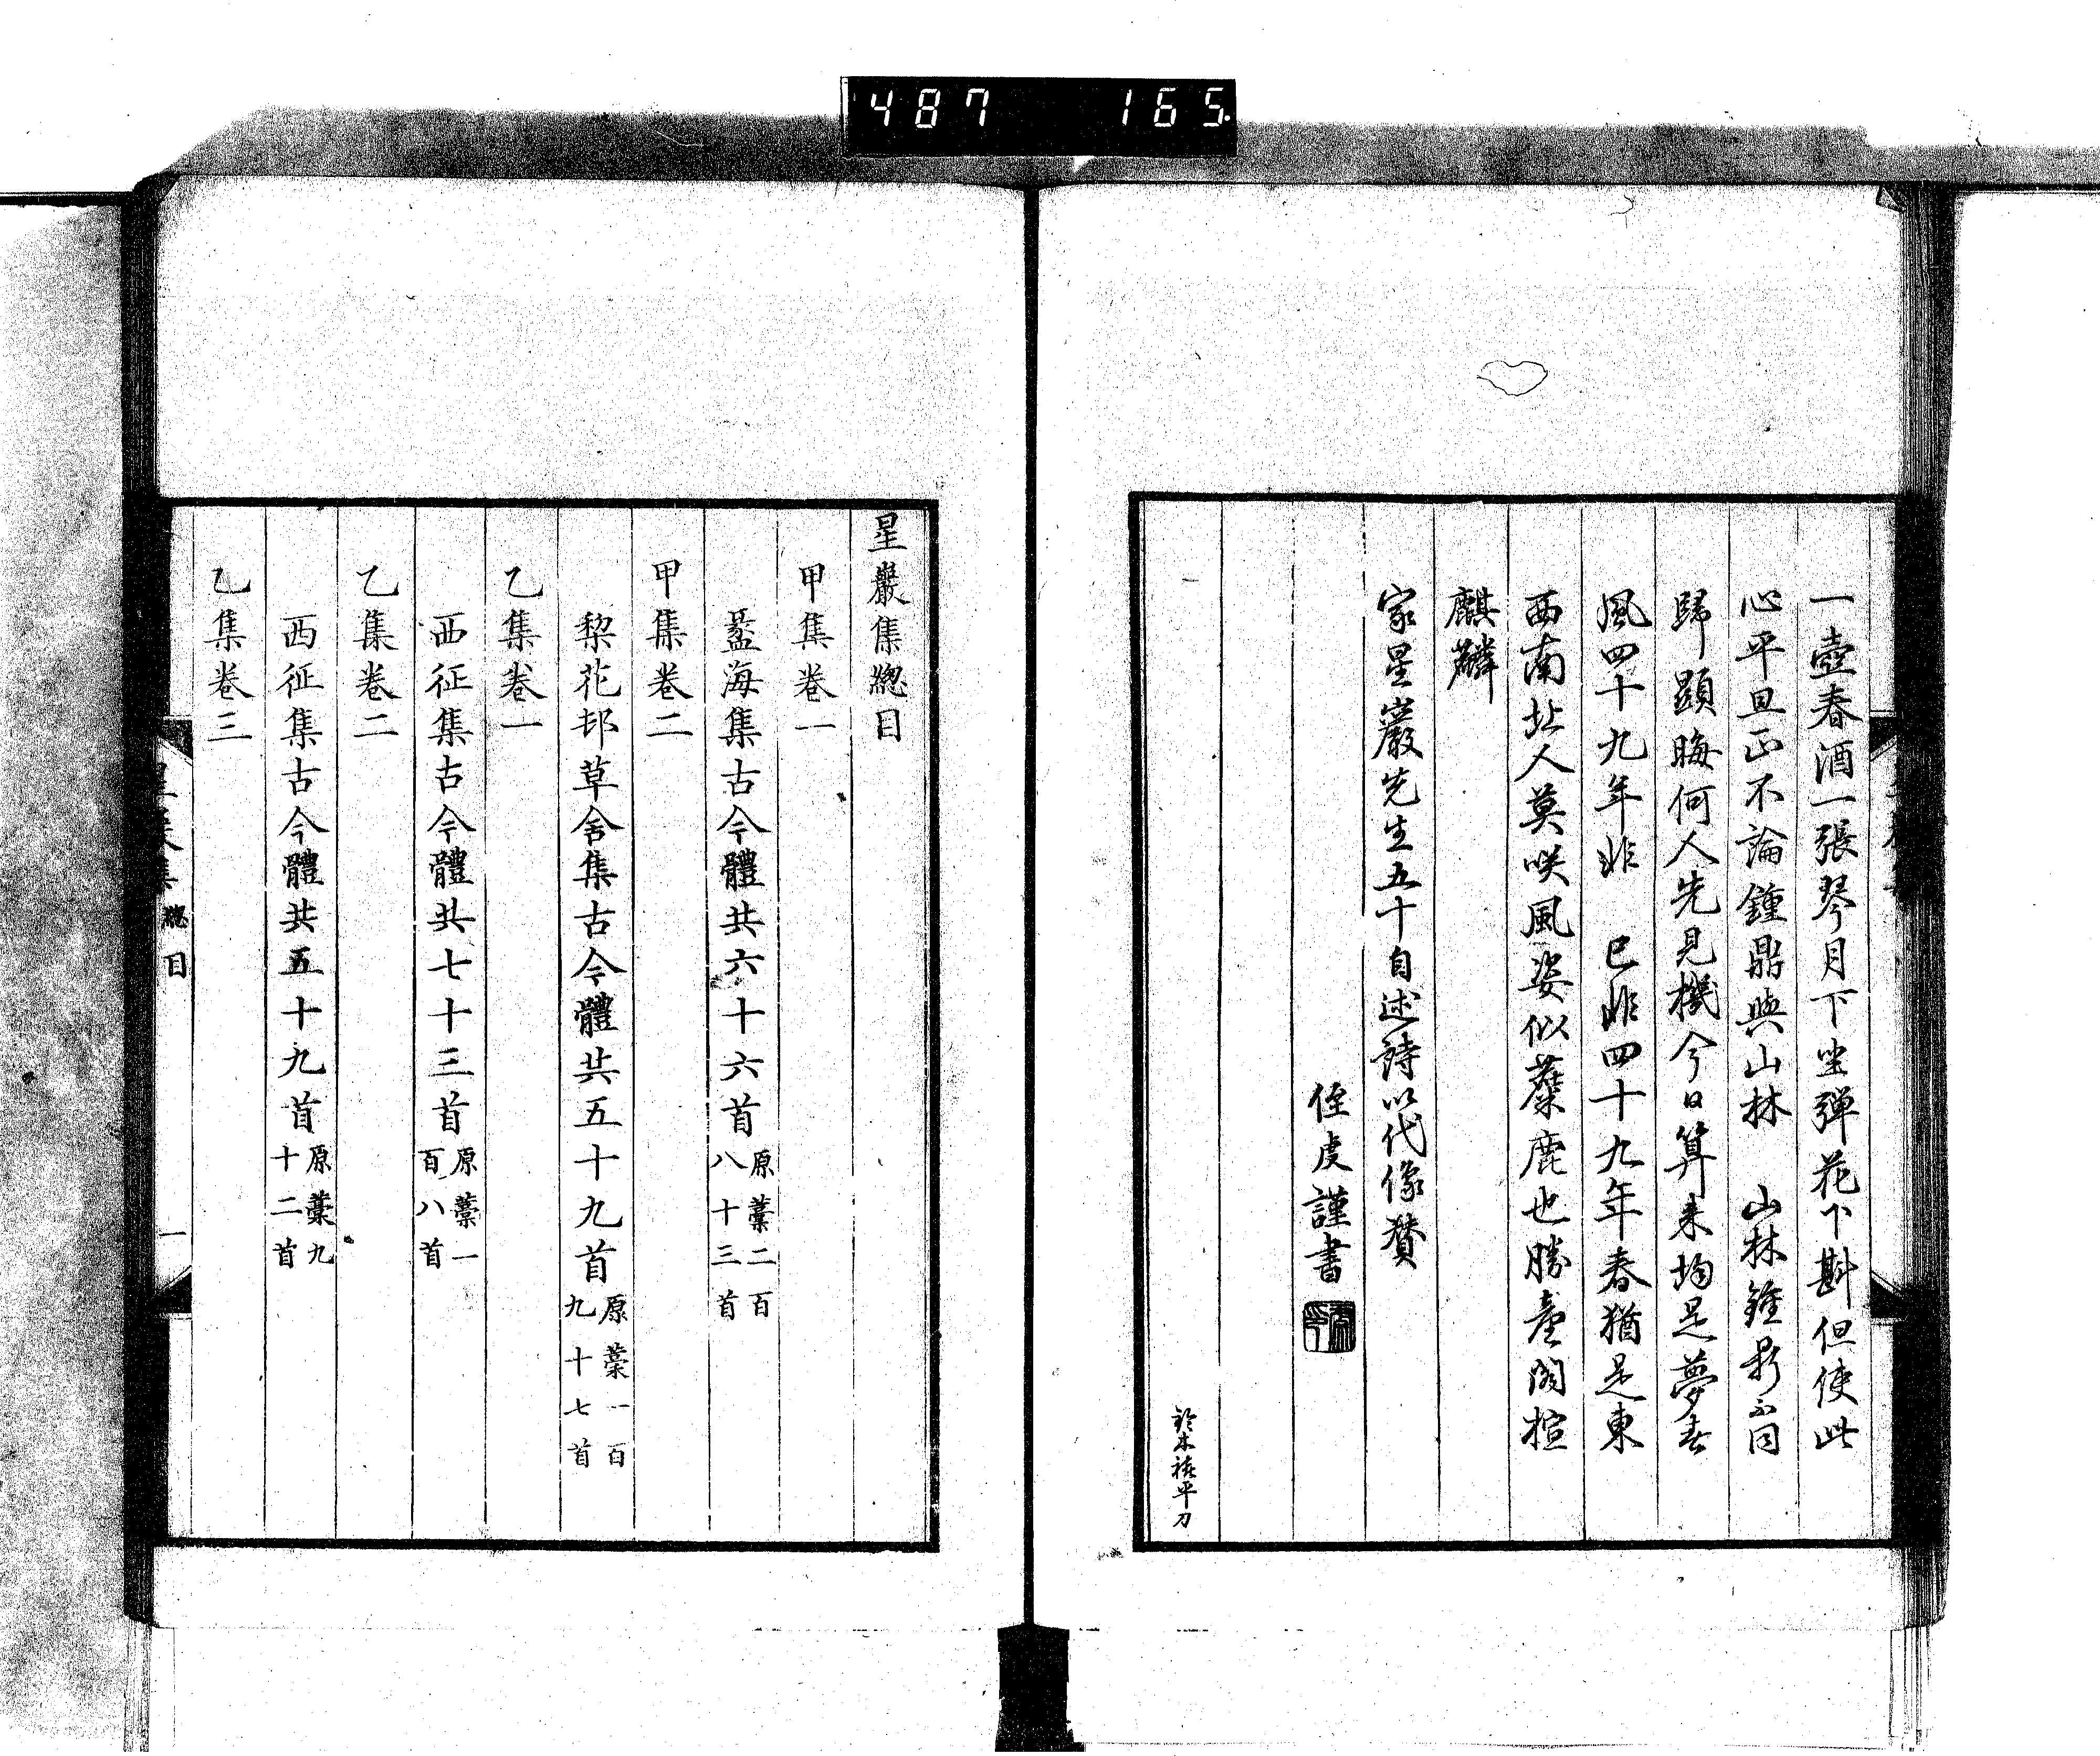 487 165
一壺春酒一張琴月下坐彈花下斟但使此
心平且正不論鐘鼎與山林 山林鐘鼎不同
歸顯晦何人先見機今日算来均是夢春
風四十九年非 已非四十九年春猶是東
西南北人莫咲風姿似麋鹿也勝臺閣楦
麒麟
家星巖先生五十自述詩以代像賛
侄虔謹書
鈴木禎平刀
星巖集總目
甲集卷一
蠚海集古今體共六十六首原藁二百八十三首
甲集卷二
棃花邨草舍集古今體共五十九首原藁一百九十七首
乙集卷一
西征集古今體共七十三首原藁一百八首
乙集卷二
西征集古今體共五十九首原藁九十二首
乙集卷三
總目
一